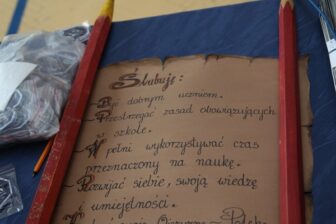 Ślubuję:
– Być dobrym uczniem.
– Przestrzegać zasad obowiązujących
w szkole.
– W pełni wykorzystywać czas
przeznaczony na naukę.
– Rozwijać siebie, swoją wiedzę
i umiejętności.